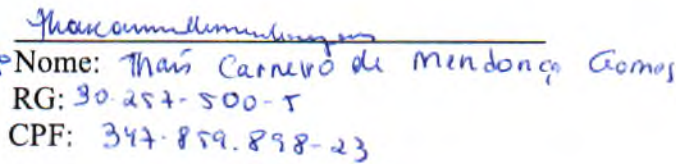 Nome: Thais Carnevó de Mendonça Gomes
RG: 30.257-500-5
CPF: 347.859.898-23